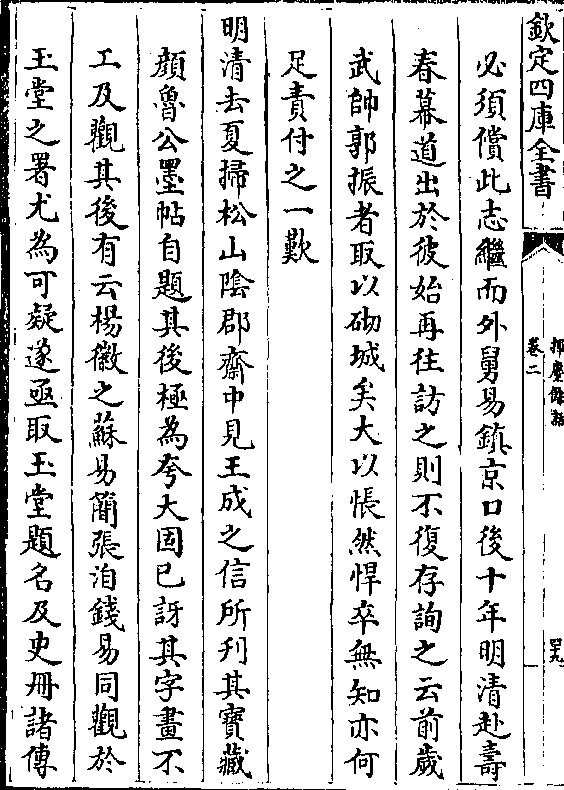 欽定四庫全書
揮麈餘話
卷二
四九
必須償此志繼而外舅易鎮京口後十年明清赴壽
春幕道出於彼始再往訪之則不復存詢之云前歲
武帥郭振者取以砌城矣大以悵然悍卒無知亦何
足責付之一歎
明清去夏掃松山陰郡齋中見王成之信所刋其寶藏
顔魯公墨帖自題其後極為夸大固已訝其字畫不
工及觀其後有云楊徽之蘇易簡張洎錢易同觀於
玉堂之署尤為可疑遂亟取玉堂題名及史冊諸傳